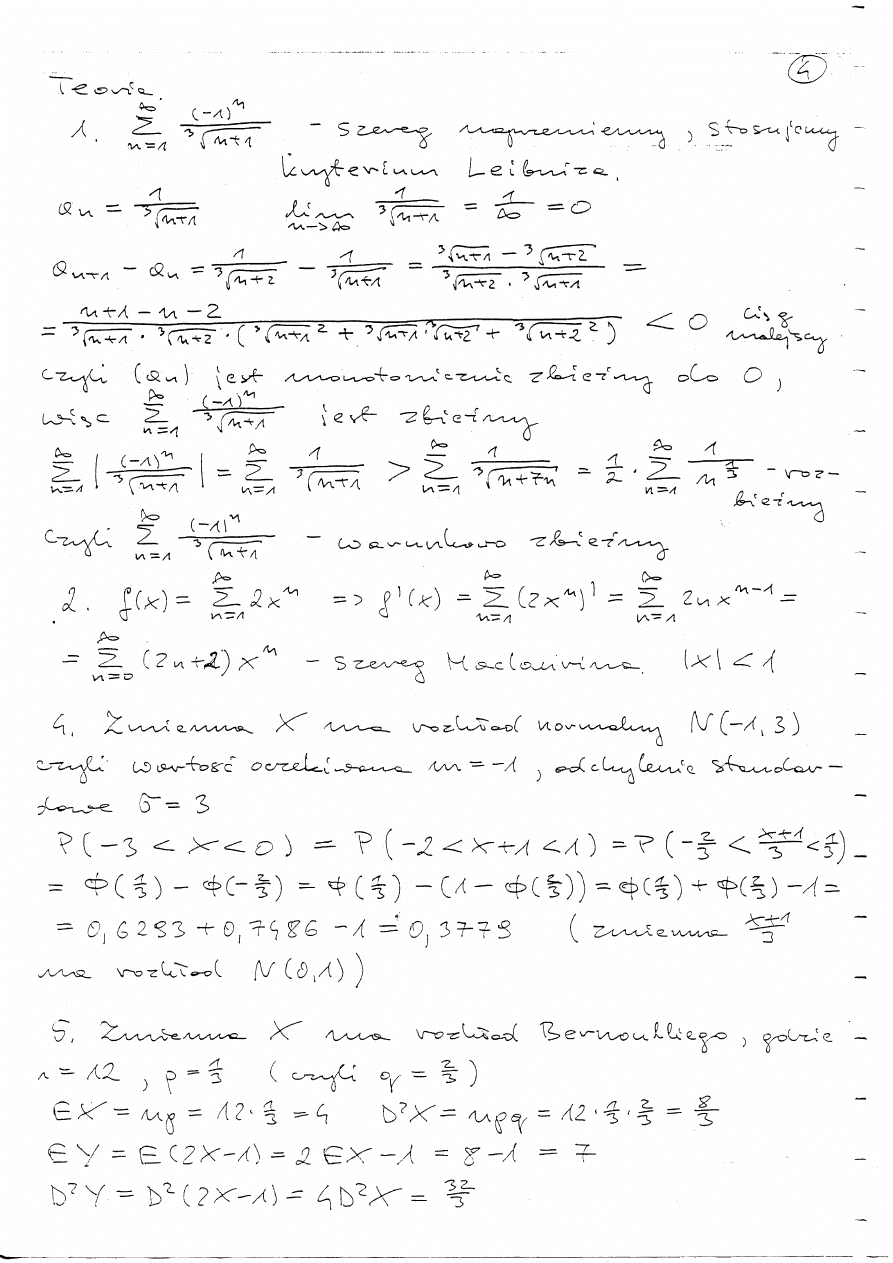 4
Teoria.
1. ∑_{n=1}^{∞} (-1)^n / ∛(n+1) - szereg naprzemienny, stosujemy
kryterium Leibniza.
a_n = 1/∛(n+1)   lim_{n->∞} 1/∛(n+1) = 1/∞ = 0
a_{n+1} - a_n = 1/∛(n+2) - 1/∛(n+1) = (∛(n+1) - ∛(n+2)) / (∛(n+2) · ∛(n+1)) =
= (n+1-n-2) / (∛(n+1) · ∛(n+2) · (∛(n+1)² + ∛(n+1) · ∛(n+2) + ∛(n+2)²)) < 0 ciąg malejący
czyli (a_n) jest monotonicznie zbieżny do 0,
więc ∑_{n=1}^{∞} (-1)^n / ∛(n+1) jest zbieżny
∑_{n=1}^{∞} |(-1)^n / ∛(n+1)| = ∑_{n=1}^{∞} 1/∛(n+1) > ∑_{n=1}^{∞} 1/∛(n+7n) = 1/2 · ∑_{n=1}^{∞} 1/n^{1/3} - roz-
bieżny
czyli ∑_{n=1}^{∞} (-1)^n / ∛(n+1) - warunkowo zbieżny
2. f(x) = ∑_{n=1}^{∞} 2x^n => f'(x) = ∑_{n=1}^{∞} (2x^n)' = ∑_{n=1}^{∞} 2nx^{n-1} =
= ∑_{n=0}^{∞} (2n+2)x^n - szereg Maclaurina. |x| < 1
4. Zmienna X ma rozkład normalny N(-1,3)
czyli wartość oczekiwana m = -1, odchylenie standar-
dowe σ = 3
P(-3 < X < 0) = P(-2 < X+1 < 1) = P(-2/3 < (X+1)/3 < 1/3)
= Φ(1/3) - Φ(-2/3) = Φ(1/3) - (1 - Φ(2/3)) = Φ(1/3) + Φ(2/3) - 1 =
= 0,6293 + 0,7486 - 1 = 0,3779   (zmienna (X+1)/3
ma rozkład N(0,1))
5. Zmienna X ma rozkład Bernoulliego, gdzie
n = 12, p = 1/3 (czyli q = 2/3)
EX = np = 12 · 1/3 = 4   D²X = npq = 12 · 1/3 · 2/3 = 8/3
EY = E(2X-1) = 2EX - 1 = 8 - 1 = 7
D²Y = D²(2X-1) = 4D²X = 32/3